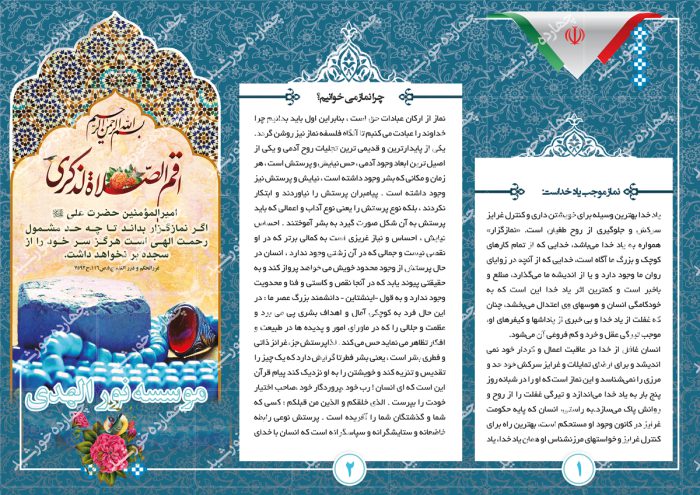 نماز موجب یاد خداست:
یاد خدا بهترین وسیله برای خویشتن داری و کنترل غرایز
سرکش و جلوگیری از روح طغیان است. «نمازگزار»
همواره به یاد خدا می‌باشد، خدایی که از تمام کارهای
کوچک و بزرگ ما آگاه است، خدایی که از آنچه در زوایای
روان ما وجود دارد و یا از اندیشه ما می‌گذارد، مطلع و
باخبر است و کمترین اثر یاد خدا این است که به
خودکامگی انسان و هوسهای وی اعتدال می‌بخشد، چنان
که غفلت از یاد خدا و بی خبری از پاداشها و کیفرهای او،
موجب تیرگی عقل و خرد و کم فروغی آن می‌شود.
انسان غافل از خدا در عاقبت اعمال و کردار خود نمی
اندیشد و برای ارضای تمایلات و غرایز سرکش خود حد و
مرزی را نمی‌شناسد و این نماز است که او را در شبانه روز
پنج بار به یاد خدا می‌اندازد و تیرگی غفلت را از روح و
روانش پاک می‌سازد.به راستی، انسان که پایه حکومت
غرایز در کانون وجود او مستحکم است، بهترین راه برای
کنترل غرایز و خواستهای مرزنشناس او همان یاد خدا، یاد
۱
چرا نماز می خوانیم؟
نماز از ارکان عبادات حق است ، بنابراین اول باید بدانیم چرا
خداوند را عبادت می کنیم تا آنگاه فلسفه نماز نیز روشن گردد.
یکی از پایدارترین و قدیمی ترین تجلیات روح آدمی و یکی از
اصیل ترین ابعاد وجود آدمی ، حس نیایش و پرستش است ، هر
زمان و مکانی که بشر وجود داشته است ، نیایش و پرستش نیز
وجود داشته است . پیامبران پرستش را نیاوردند و ابتکار
نکردند ، بلکه نوع پرستش را یعنی نوع آداب و اعمالی که باید
پرستش به آن شکل صورت گیرد به بشر آموختند . احساس
نیایش ، احساس و نیاز غریزی است به کمالی برتر که در او
نقصی نیست و جمالی که در آن زشتی وجود ندارد ، انسان در
حال پرستش از وجود محدود خویش می خواهد پرواز کند و به
حقیقتی پیوند یابد که در آنجا نقص و کاستی و فنا و محدویت
وجود ندارد و به قول «اینشتاین» - دانشمند بزرگ عصر ما : در
این حال فرد به کوچکی آمال و اهداف بشری پی می برد و
عظمت و جلالی را که در ماورای امور و پدیده ها در طبیعت و
افکار تظاهر می نماید حس می کند . لذا پرستش جزء غرائز ذاتی
و فطری بشر است ، یعنی بشر فطرتا گرایش دارد که یک چیز را
تقدیس و تنزیه کند و خویشتن را به او نزدیک کند پیام قرآن
این است که ای انسان ! رب خود ،پروردگار خود ،صاحب اختیار
خودت را بپرست . الذی خلقکم و الذین من قبلکم : کسی که
شما و گذشتگان شما را آفریده است . پرستش نوعی رابطه
خاضعانه و ستایشگرانه و سپاسگرانه است که انسان با خدای
۲
بسم الله الرحمن الرحیم
اقم الصلاة لذکری
امیرالمؤمنین حضرت علی
اگر نمازگزار بداند تا چه حد مشمول
رحمت الهی است هرگز سر خود را از
سجده بر نخواهد داشت.
موسسه نور الهدی
چهارده خورشید